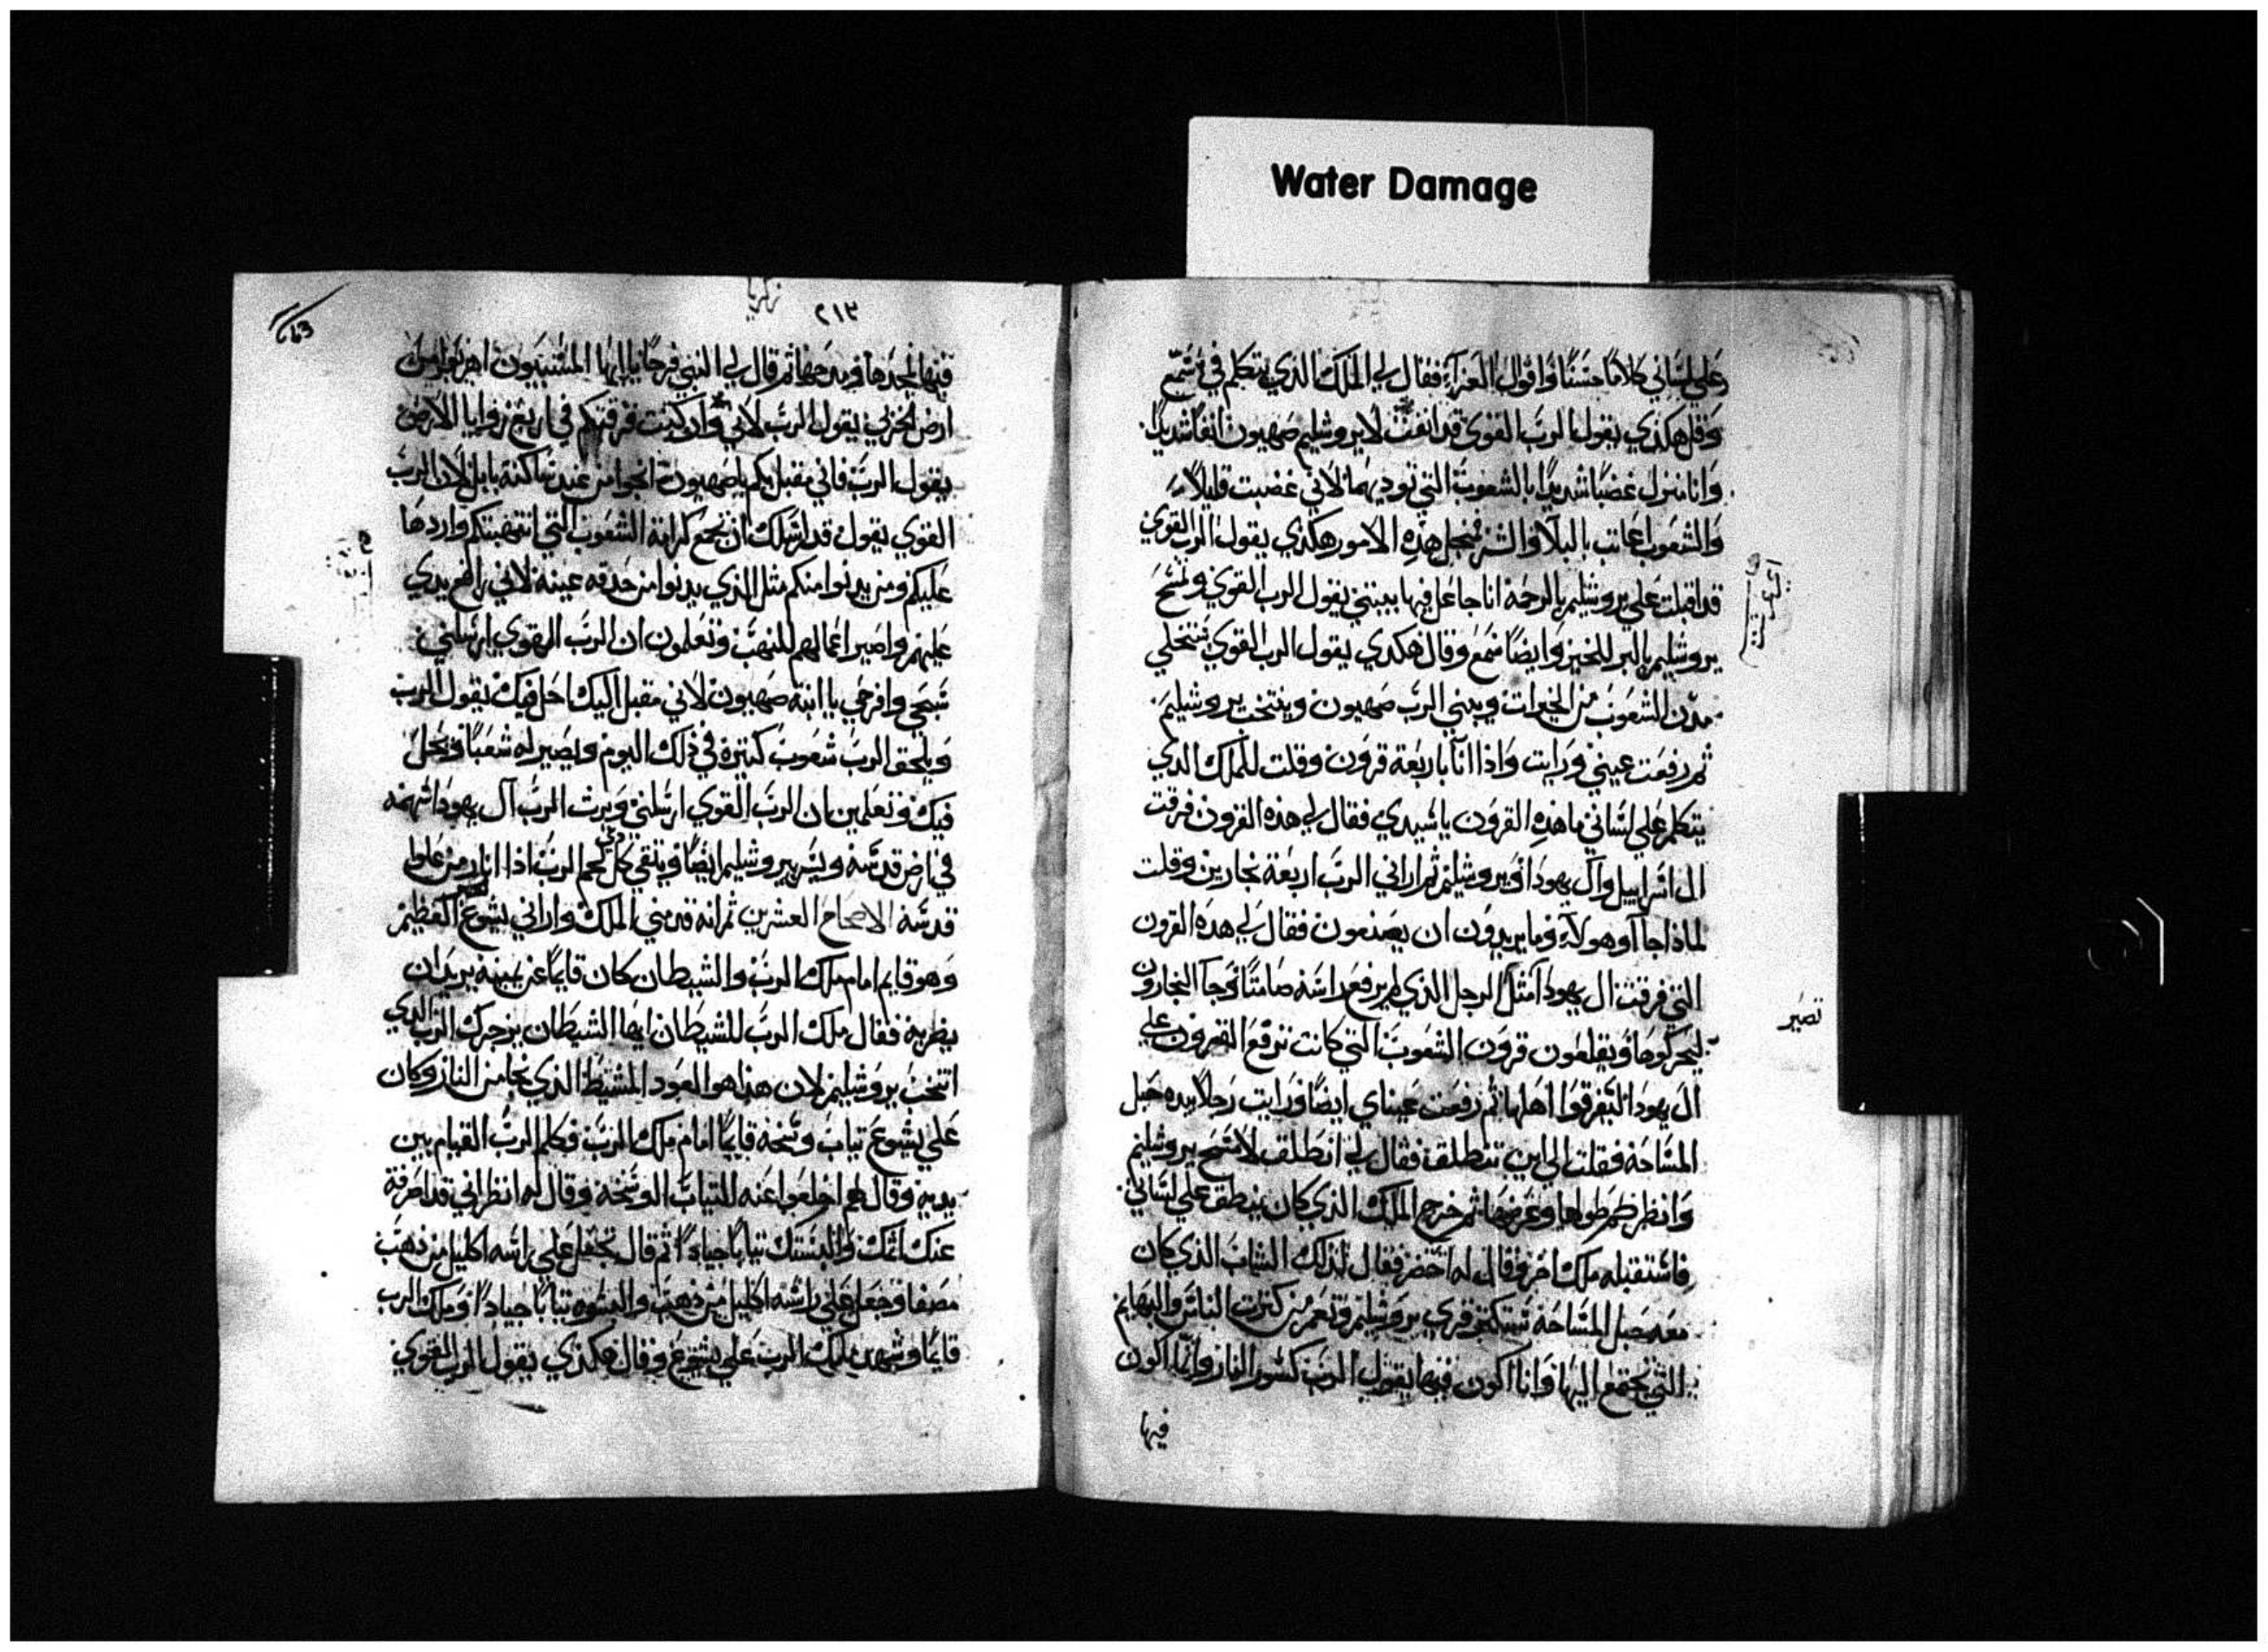 Water Damage
علي لساني كلامًا حسنًا واقوال العزآء فقال لي الملك الذي يتكلم في تسمع
وقل هكذي يقول الرب القوي قد انفت لايروشليم صهيون انفا شديدًا
وانا منزل غضبًا شديدًا بالشعوب التي توديهما لاني غضبت قليلاً
والشعوب اعانت بالبلا والشر فمنجل هذه الامور هكذي يقول الرب القوي
قد اقبلت علي يروشليم بالرحمة انا جاعل فيها بيتي يقول الرب القوي وتمسح
يروشليم بالبر للخير وايضًا سمع وقال هكدي يقول الرب القوي ستحلي
مدن الشعوب من الخيرات ويبني الرب صهيون وينتخب يروشليم
ثم رفعت عيني ورايت واذا انا باربعة قرون وقلت للملك الدي
يتكلم علي لساني ما هذه القرون ياسيدي فقال لي هذه القرون فرقت
ال اسراييل وآل يهودا ويروشليم ثم اراني الرب اربعة نجارين وقلت
لماذا جاآو هولآء وما يريدون ان يصنعون فقال لي هده القرون
التي فرقت ال يهودا مثل الرجل الذي لم يرفع راسه صامتًا وجآ النجارون
ليحركوها ويقلعون قرون الشعوب التي كانت ترفع القرون علي
ال يهودا لتفرقوا اهلها ثم رفعت عيناي ايضًا ورايت رجلاً بيده حبل
المساحة فقلت الي اين تنطلق فقال لي انطلق لامسح يروشليم
وانظر كم طولها وعرضها ثم خرج الملك الذي كان ينطق علي لساني
فاستقبله ملك اخر وقال له احضر فقال لذلك الشاب الذي كان
معه حبل المساحة ستكتر قري يروشليم وتعمر من كترت الناس والبهايم
التي تجتمع اليها وانا اكون فيها يقول الرب كسور النار وانما اكون
فيها
تصير
زكريا
٢١٣
فيها لمجدها ومدحها ثم قال لي النبي فرحانا ايها المسبيون اهربوا من
ارض الجربي يقول الرب لاني وان كنت فرقتكم في اربع زوايا الارض
يقول الرب فاني مقبل بكم يا صهيون انجوا من عند ساكنة بابل لان الرب
القوي يقول قد ارسلك ان تجمع كرامة الشعوب التي انتهبتكم واردها
عليكم ومن يدنوا منكم مثل الذي يدنوا من حدقه عينه لاني رافع يدي
عليهم واصير اعمالهم للنهب وتعلمون ان الرب القوي ارسلني
سبحي وافرحي يا ابنة صهيون لاني مقبل اليك احل فيك يقول الرب
ويلحق الرب شعوب كتيرة في ذلك اليوم ويصير له شعبًا ويحل
فيك وتعلمين بان الرب القوي ارسلني ويرث الرب آل يهودا سهمه
في ارض قدسه ويسر بيروشليم ايضًا ويتقي كل لحم الرب اذا انار من علوا
قدسه الاصحاح العشرين ثم انه قدمني الملك واراني يشوع العظيم
وهو قايم امام ملك الرب والشيطان كان قايمًا عن يمينه يريد ان
يضربه فقال ملك الرب للشيطان ايها الشيطان يزجرك الرب الدي
انتخب يروشليم لان هذا هو العود المشيط الذي نجا من النار وكان
علي يشوع تياب وسخه قايمًا امام ملك الرب فكلم الرب القيام بين
يديه وقال لهم اخلعوا عنه التياب الوسخة وقال له انظر اني قد اصرفة
عنك اثمك والبستك تيابا جيادًا ثم قال تجعل علي راسه اكليل من ذهب
مصفا وجعل علي راسه اكليل من ذهب والبسوه تيابا جيادًا وملك الرب
قايمًا وشهد ملك الرب علي يشوع وقال هكذي يقول الرب القوي